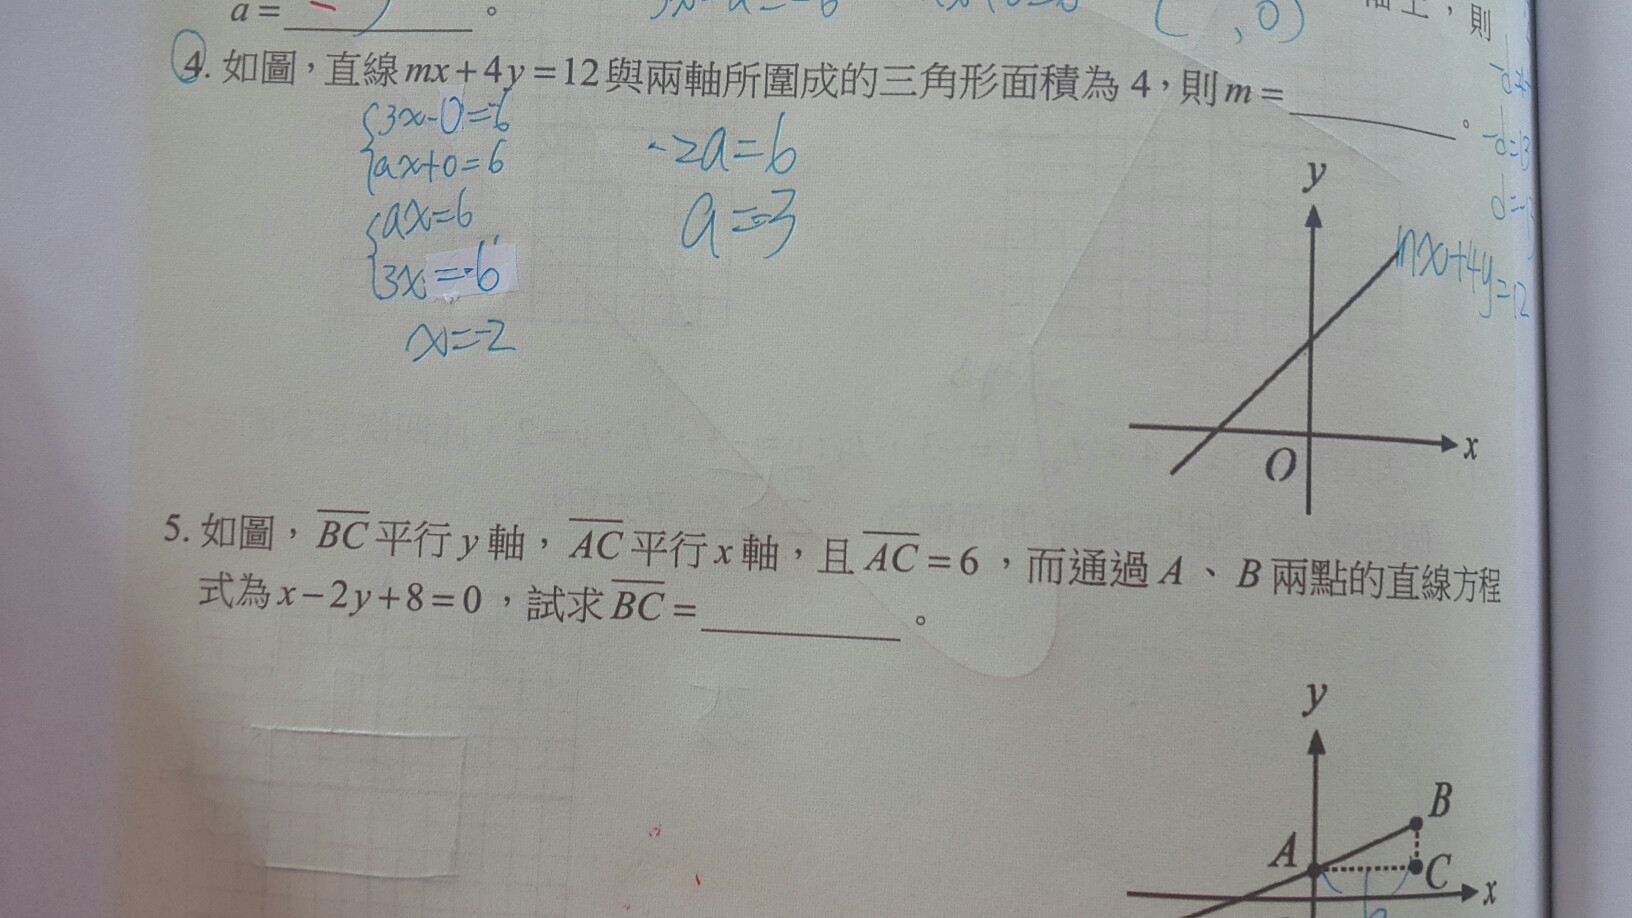 a=
( ,0)
軸上，則
4. 如圖，直線mx+4y=12與兩軸所圍成的三角形面積為 4，則m=＿＿＿＿。
{3x-0=-6
ax+0=6
{ax=6
3x=-6
x=-2
-2a=6
a=-3
d=-13
y
mx+4y=12
x
O
5. 如圖，BC平行y軸，AC平行x軸，且AC=6，而通過A、B兩點的直線方程
式為x-2y+8=0，試求BC=＿＿＿＿。
y
B
A
C
x
6